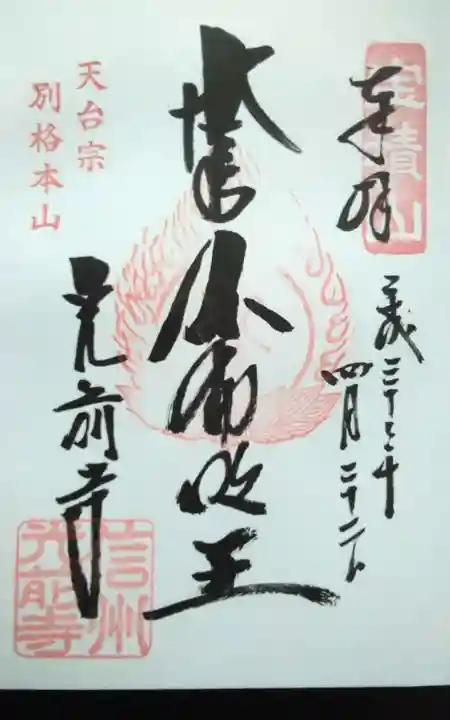 宝積山
奉拝
平成三十年
四月二十二日
大聖不動明王
天台宗
別格本山
光前寺
信州
光前寺